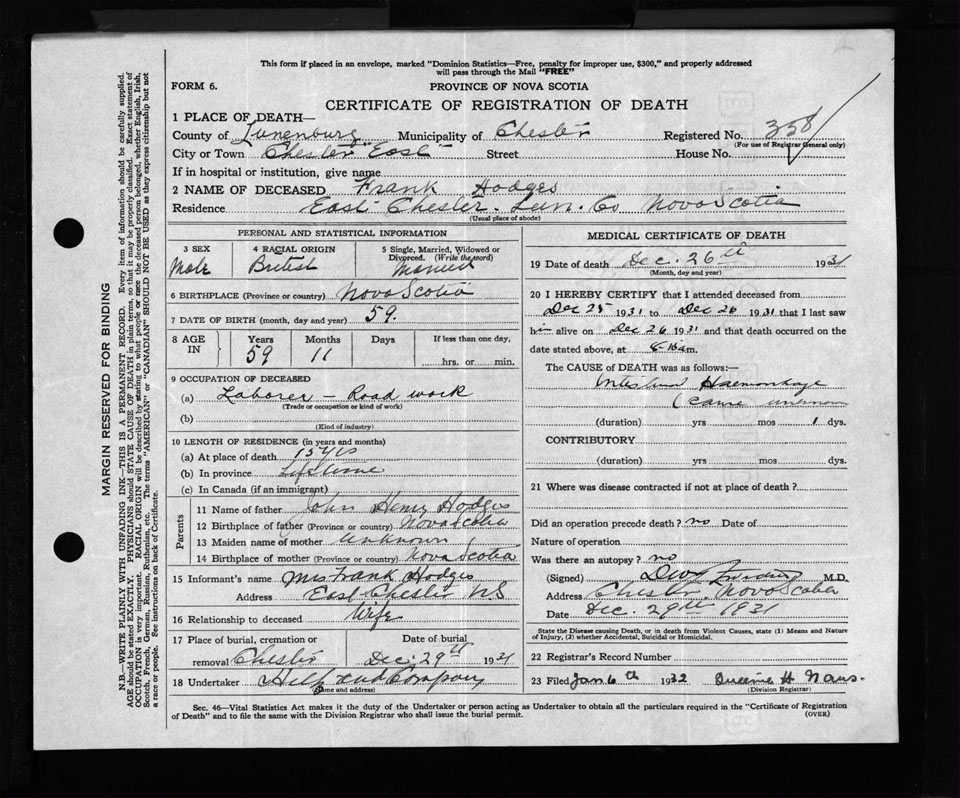 This form if placed in an envelope, marked "Dominion Statistics—Free, penalty for improper use, $300," and properly addressed
will pass through the Mail "FREE"
FORM 6.
PROVINCE OF NOVA SCOTIA
CERTIFICATE OF REGISTRATION OF DEATH
1 PLACE OF DEATH—
County of Lunenburg Municipality of Chester Registered No. 358
(For use of Registrar General only)
City or Town Chester "East" Street House No.
If in hospital or institution, give name
2 NAME OF DECEASED Frank Hodges
Residence East Chester. Lun. Co Nova Scotia
(Usual place of abode)
PERSONAL AND STATISTICAL INFORMATION
3 SEX 4 RACIAL ORIGIN 5 Single, Married, Widowed or
Divorced. (Write the word)
Male British Married
6 BIRTHPLACE (Province or country) Nova Scotia
7 DATE OF BIRTH (month, day and year) 59.
8 AGE IN Years Months Days If less than one day,
59 11 hrs. or min.
9 OCCUPATION OF DECEASED
(a) Laborer — Road work
(Trade or occupation or kind of work)
(b)
(Kind of industry)
10 LENGTH OF RESIDENCE (in years and months)
(a) At place of death 15 yrs
(b) In province Lifetime
(c) In Canada (if an immigrant)
Parents
11 Name of father John Henry Hodges
12 Birthplace of father (Province or country) Nova Scotia
13 Maiden name of mother Unknown
14 Birthplace of mother (Province or country) Nova Scotia
15 Informant's name Mrs Frank Hodges
Address East Chester NS
16 Relationship to deceased Wife
17 Place of burial, cremation or Date of burial
removal Chester Dec. 29th 1931
18 Undertaker and Company
(Name and address)
MEDICAL CERTIFICATE OF DEATH
19 Date of death Dec. 26th 1931
(Month, day and year)
20 I HEREBY CERTIFY that I attended deceased from
Dec 25 1931 to Dec 26 1931 that I last saw
him alive on Dec 26 1931 and that death occurred on
date stated above, at m.
The CAUSE OF DEATH was as follows:—
Intestinal Haemorrhage
(cause unknown
(duration) yrs mos 1 dys.
CONTRIBUTORY
(duration) yrs mos dys.
21 Where was disease contracted if not at place of death?
Did an operation precede death? no Date of
Nature of operation
Was there an autopsy? no
(Signed) M.D.
Address Chester. Nova Scotia
Date Dec. 29th 1931
State the Disease causing Death, or in death from Violent Causes, state (1) Means and Nature
of Injury, (2) whether Accidental, Suicidal or Homicidal.
22 Registrar's Record Number
23 Filed Jan 6th 1932 H.
(Division Registrar)
Sec. 46—Vital Statistics Act makes it the duty of the Undertaker or person acting as Undertaker to obtain all the particulars required in the "Certificate of Registration
of Death" and to file the same with the Division Registrar who shall issue the burial permit.
(OVER)
MARGIN RESERVED FOR BINDING
N.B.—WRITE PLAINLY WITH UNFADING INK—THIS IS A PERMANENT RECORD. Every item of information should be carefully supplied.
AGE should be stated EXACTLY. PHYSICIANS should STATE CAUSE OF DEATH in plain terms, so that it may be properly classified. Exact statement of
OCCUPATION is very important. RACIAL ORIGIN will be described by stating to what people or race the deceased person belonged, whether English, Irish,
Scotch, French, German, Russian, Ruthenian, etc. The terms "AMERICAN" or "CANADIAN" SHOULD NOT BE USED as they express citizenship but not
a race or people. See instructions on back of Certificate.